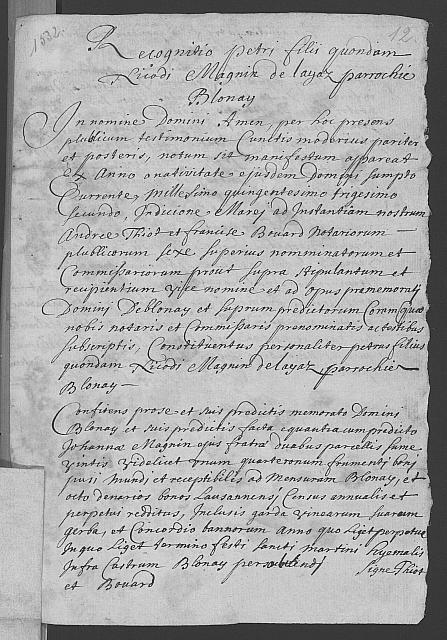 1532.
12.
Recognitio petri filii quondam
Nicodi Magnin de layaz parrochie
Blonay
In nomine Domini Amen, per hoc presens
plublicum testimonium Cunctis modernis pariter
et posteris, notum sit manifestum appareat
Anno anativitate ejusdem Domini sumpto
Currente, millesimo quingentesimo trigesimo
secundo, Indicione Marej ad Instantiam nostrum
Andree Thiot et francise Bouard Notariorum
plublicorum sexe superius nominatorum et
Commissariorum prout supra stipulantum et
recipientium vice nomine et ad opus premmemorati
Domini Deblonay et suprum predictorum Coram
nobis notaris et Commissaris prenominatis actestibus
subscriptis, Constituentus personaliter petrus filius
quondam Nicodi Magnin de layaz parrochie
Blonay
Confitens prose et suis predictis memorato Domini
Blonay et suis predictis facta equantiacum predicto
Johanne Magnin ejus fratre duabus parcellis
videlicet unum quarteronum frumenti boni
puri mundi et receptibiles ad Mensuram Blonay, et
octo denarios bonos Lausannens; Census annualis et
perpetui redditus, Inclusis garda vinearum suarum
gerba, et Concordio bannorum Anno quo liget perpetue
In quo liget termino festi sancti martini hyemalis
Infra Castrum Blonay persolvendj Signe Thiot
et Bouard